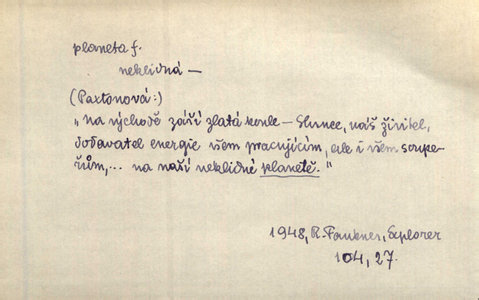 planeta f.
neklidná —
(Paxtonová:)
"na východě září zlatá koule — slunce, náš živitel,
dodavatel energie všem pracujícím, ale i všem soupe-
řům,... na naší neklidné planetě."
1948, R. Faukner, Explorer
104, 27.